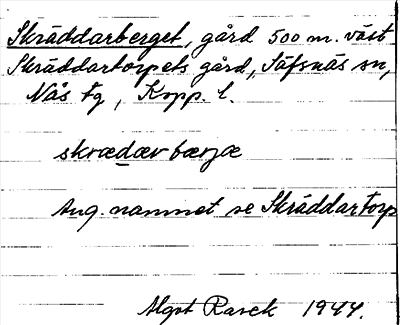 Skräddarberget, gård 500 m. väst
Skräddartorpets gård, Säfsnäs sn,
Nås tg, Kopp. l.
skrædærbærjæ
Ang. namnet se Skräddartorp
Algot Rasck 1944.